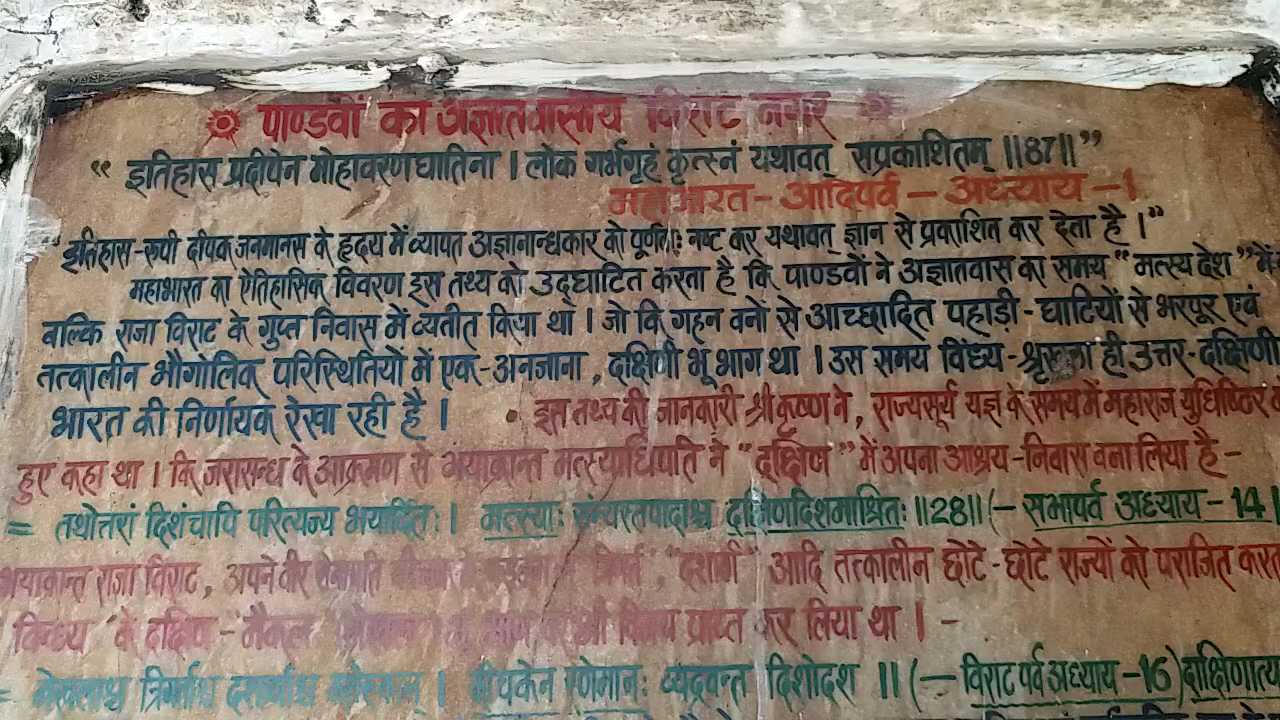 पाण्डवों का अज्ञातवासीय विराट नगर
“ इतिहास प्रदीपेन मोहावरणघातिना । लोक गर्भगृहं कृत्स्नं यथावत् सप्रकाशितम् ॥87॥”
महाभारत - आदिपर्व - अध्याय - 1
“ इतिहास - रूपी दीपक जनमानस के हृदय में व्यापत अज्ञानान्धकार को पूर्णतः नष्ट कर यथावत् ज्ञान से प्रकाशित कर देता है ।”
महाभारत का ऐतिहासिक विवरण इस तथ्य को उद्घाटित करता है कि पाण्डवों ने अज्ञातवास का समय “ मत्स्य देश ” में
बल्कि राजा विराट के गुप्त निवास में व्यतीत किया था । जो कि गहन वनों से आच्छादित पहाड़ी - घाटियों से भरपूर एवं
तत्कालीन भौगोलिक परिस्थितियों में एक - अनजाना , दक्षिणी भू भाग था । उस समय विंध्य - श्रृंखला ही उत्तर - दक्षिणी
भारत की निर्णायक रेखा रही है । • इस तथ्य की जानकारी श्री कृष्ण ने , राज्यसूर्य यज्ञ के समय में महाराज युधिष्ठिर
हुए कहा था । कि जरासन्ध के आक्रमण से भयाक्रान्त मत्स्याधिपति ने “ दक्षिण ” में अपना आश्रय - निवास बना लिया है -
= तथोत्तरां दिशंचापि परित्यज्य भयार्दितः । मत्स्याः संन्यस्तपादाश्च दक्षिणदिशमाश्रितः ॥28॥ (- सभापर्व अध्याय - 14
भयाक्रान्त राजा विराट , अपने वीर सेनापति “ दशार्ण ” आदि तत्कालीन छोटे - छोटे राज्यों को पराजित
विन्ध्य के दक्षिण - मैकल प्राप्त कर लिया था । -
= मेखलाश्च त्रिगर्ताश्च दशार्णाश्च । व्यद्रवन्त दिशोदश ॥ (- विराट पर्व अध्याय - 16) दाक्षिणात्य